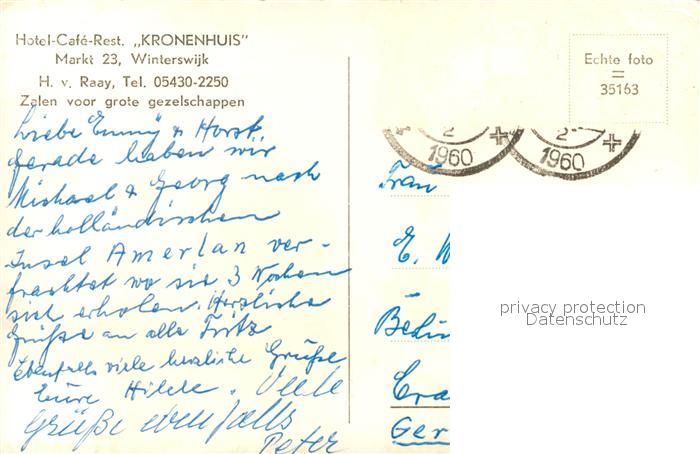 Hotel-Café-Rest. „KRONENHUIS"
Markt 23, Winterswijk
H. v. Raay, Tel. 05430-2250
Zalen voor grote gezelschappen
Liebe Emmy & Horst,
gerade haben wir
Michael & Georg nach
der holländischen
Insel Amerlan ver-
frachtet wo sie 3 Wochen
sich erholen. Herzliche
Grüße an alle Fritz
Ebenfalls viele herzliche Grüße
Eure Hilde. Viele
Grüße ebenfalls
Peter
Echte foto
=
35163
2
1960
2
1960
Frau
E.
privacy protection
Datenschutz
Ger